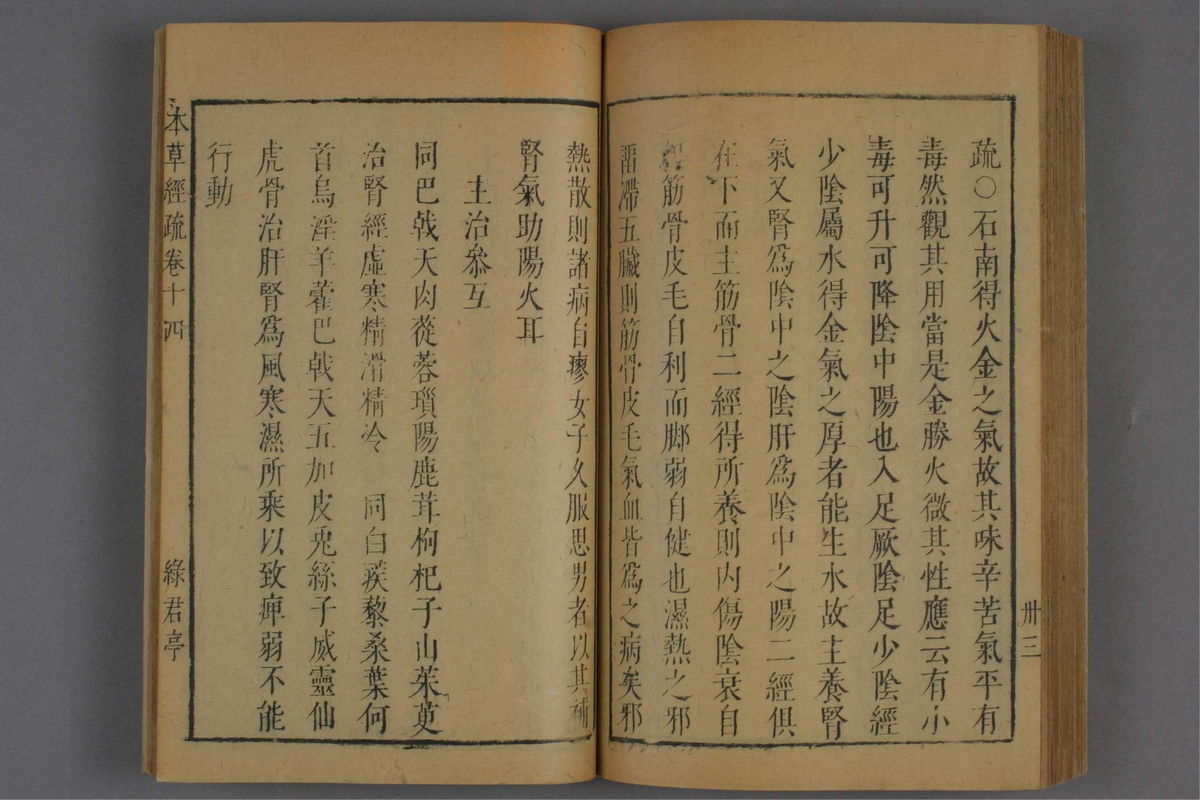 卅三
疏○石南得火金之氣故其味辛苦氣平有
毒然觀其用當是金勝火微其性應云有小
毒可升可降陰中陽也入足厥陰足少陰經
少陰屬水得金氣之厚者能生水故主養腎
氣又腎爲陰中之陰肝爲陰中之陽二經俱
在下而主筋骨二經得所養則內傷陰衰自
筋骨皮毛自利而脚弱自健也濕熱之邪
畱滯五臟則筋骨皮毛氣血皆爲之病矣邪
熱散則諸病自瘳女子久服思男者以其補
腎氣助陽火耳
主治叅互
同巴戟天肉蓯蓉瑣陽鹿茸枸杞子山茱萸
治腎經虛寒精滑精冷 同白蒺藜桑葉何
首烏淫羊藿巴戟天五加皮兎絲子威靈仙
虎骨治肝腎爲風寒濕所乘以致痺弱不能
行動
本草經疏卷十四 綠君亭